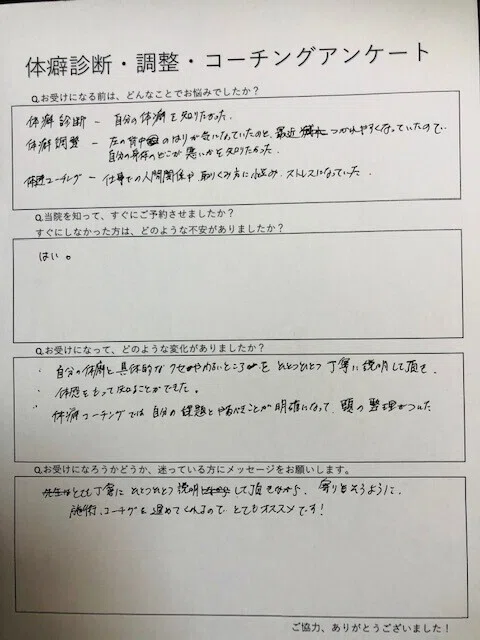 体癖診断・調整・コーチングアンケート
Q.お受けになる前は、どんなことでお悩みでしたか？
体癖診断 － 自分の体癖を知りたかった。
体癖調整 － 左の背中のはりが気になっていたのと、最近 つかれやすくなっていたので、
自分の身体のどこが悪いかを知りたかった。
体癖コーチング － 仕事での人間関係や取りくみ方に悩み、ストレスになっていた。
Q.当院を知って、すぐにご予約させましたか？
すぐにしなかった方は、どのような不安がありましたか？
はい。
Q.お受けになって、どのような変化がありましたか？
・自分の体癖と具体的なクセや ところを ひとつひとつ丁寧に説明して頂き、
・体感をもって知ることができた。
・体癖コーチングでは自分の課題とやるべきことが明確になって、頭の整理がついた
Q.お受けになろうかどうか、迷っている方にメッセージをお願いします。
とても丁寧に ひとつひとつ説明 して頂きながら、寄りそうように、
施術、コーチングを進めてくれるので とてもオススメです！
ご協力、ありがとうございました！